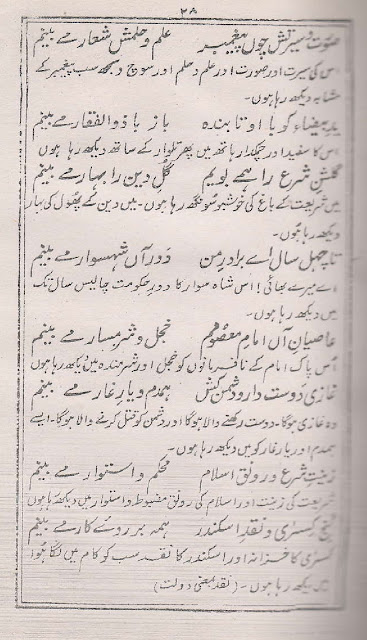 ۲۸
صورت و سیرتش چوں پیغمبر علم و حلمش شعار مے بینم
اس کی سیرت اور صورت اور علم و حلم اور سوچ و سمجھ سب پیغمبر کے
مشابہ دیکھ رہا ہوں۔
ید بیضاء کو با او تابندہ باز با ذوالفقار مے بینم
اس کا سفید اور چمکدار ہاتھ میں پھر تلوار کے ساتھ دیکھ رہا ہوں
گلشنِ شرع را ہمے بویم گلِ دین را بہار مے بینم
میں شریعت کے باغ کی خوشبو سونگھ رہا ہوں۔ میں دین کے پھول کی بہار
دیکھ رہا ہوں۔
تا چہل سال اے برادرِ من دورِ آں شہسوار مے بینم
اے میرے بھائی! اس شاہ سوار کا دورِ حکومت چالیس سال تک
میں دیکھ رہا ہوں۔
عاصیان آں امامِ معصوم خجل و شرمسار مے بینم
اُس پاک امام کے نافرمانوں کو خجل اور شرمندہ میں دیکھ رہا ہوں
غازی دوست دار و دشمن کش ہمدم و یارِ غار مے بینم
وہ غازی ہوگا۔ دوست رکھنے والا ہوگا اور دشمن کو قتل کرنے والا ہوگا۔ ایسے
ہمدم اور یارِ غار کو میں دیکھ رہا ہوں۔
زینتِ شرع و رونقِ اسلام محکم و استوار مے بینم
شریعت کی زینت اور اسلام کی رونق مضبوط و استوار میں دیکھ رہا ہوں
گنج کسریٰ و نقدِ اسکندر ہمہ بر روئے کار مے بینم
کسریٰ کا خزانہ اور اسکندر کا نقد سب کو کام میں لگا ہوا
میں دیکھ رہا ہوں۔ (نقد بمعنی دولت)